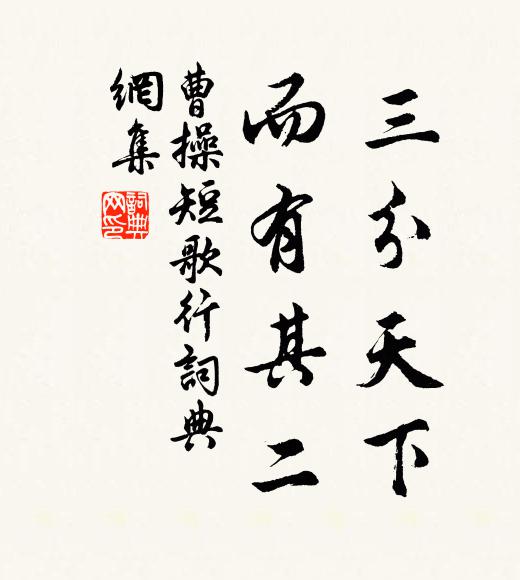 三分天下
而有其二
曹操短歌行詞典
網集
詞典
网印